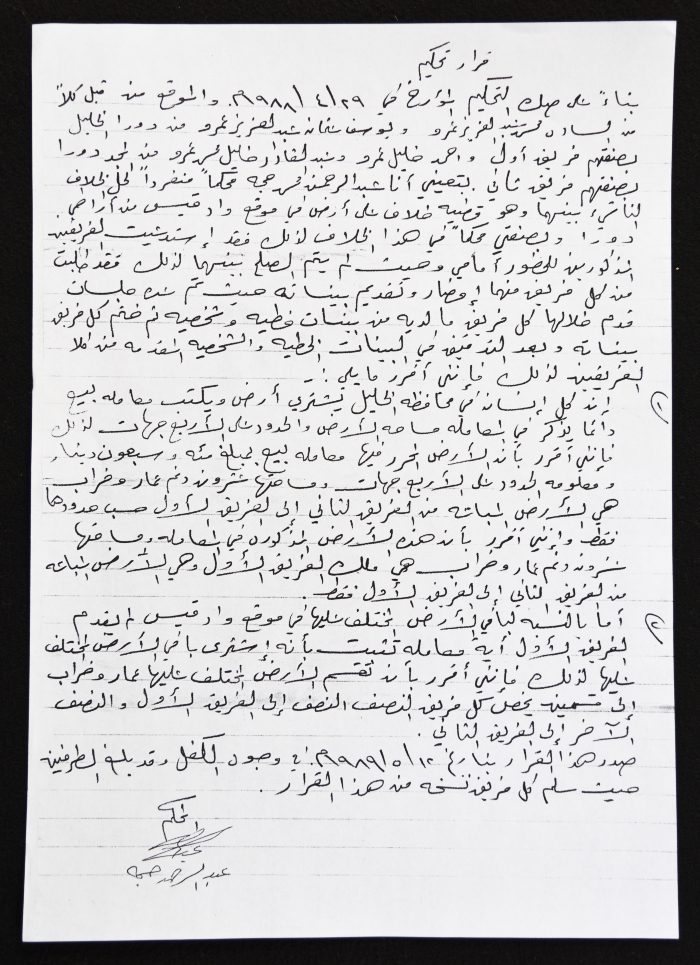 قرار تحكيم
بناءً على صك التحكيم المؤرخ في ٢٩/٤/١٩٨٨م والموقع من قبل كلاً
من السادة عبد العزيز عمرو ويوسف عثمان عبد العزيز عمرو من دورا الخليل
بصفتهم فريق أول واحمد خليل عمرو وعبد القادر خليل عمرو من مجد دورا
بصفتهم فريق ثاني بتعييني أنا عبد الرحمن حجه محكماً منفرداً لحل الخلاف
الناشيء بينهما وهو قضية خلاف على أرض في موقع واد قيس من أراضي
دورا وبصفتي محكماً في هذا الخلاف لذلك فقد إستدعيت الفريقين
المذكورين للحضور أمامي وحيث لم يتم الصلح بينهما لذلك فقد طلبت
من كل فريق منهما إحضار وتقديم بيناته حيث تم عدة جلسات
قدم خلالها كل فريق ما لديه من بينات خطيه وشخصيه ثم ختم كل فريق
بيناته وبعد التدقيق في البينات الخطيه والشخصيه المقدمه من كلا
الفريقين لذلك فإنني أقرر ما يلي :-
١) إن كل إنسان في محافظة الخليل يشتري أرض ويكتب معامله بيع
دائما يذكر في المعامله مساحه الأرض والحدود على الأربع جهات لذلك
فإنني أقرر بأن الأرض المحرر فيها معامله بيع بمبلغ مئه وسبعون دينار
ومعلومه الحدود على الأربع جهات ومساحتها عشرون دنم عمار وخراب
هي الأرض المباعه من الفريق الثاني إلى الفريق الأول حسب حدودها
فقط وإنني أقرر بأن هذه الأرض المذكوره في المعامله ومساحتها
عشرون دنم عمار وخراب هي ملك الفريق الأول وهي الأرض المباعه
من الفريق الثاني إلى الفريق الأول فقط.
٢) أما بالنسبه لباقي الأرض المختلف عليها في موقع واد قيس لم يقدم
الفريق الأول أية معامله تثبت بأنه إشترى باقي الأرض المختلف
عليها لذلك فإنني أقرر بأن تقسم الأرض المختلف عليها عمار وخراب
إلى قسمين يخص كل فريق النصف النصف إلى الفريق الأول والنصف
الآخر إلى الفريق الثاني.
صدر هذا القرار بتاريخ ١٢/٥/١٩٨٩م في وصول الكفل وقد بلغ الطرفين
حيث سلم كل فريق نسخه من هذا القرار.
المحكم
عبد الرحمن حجه